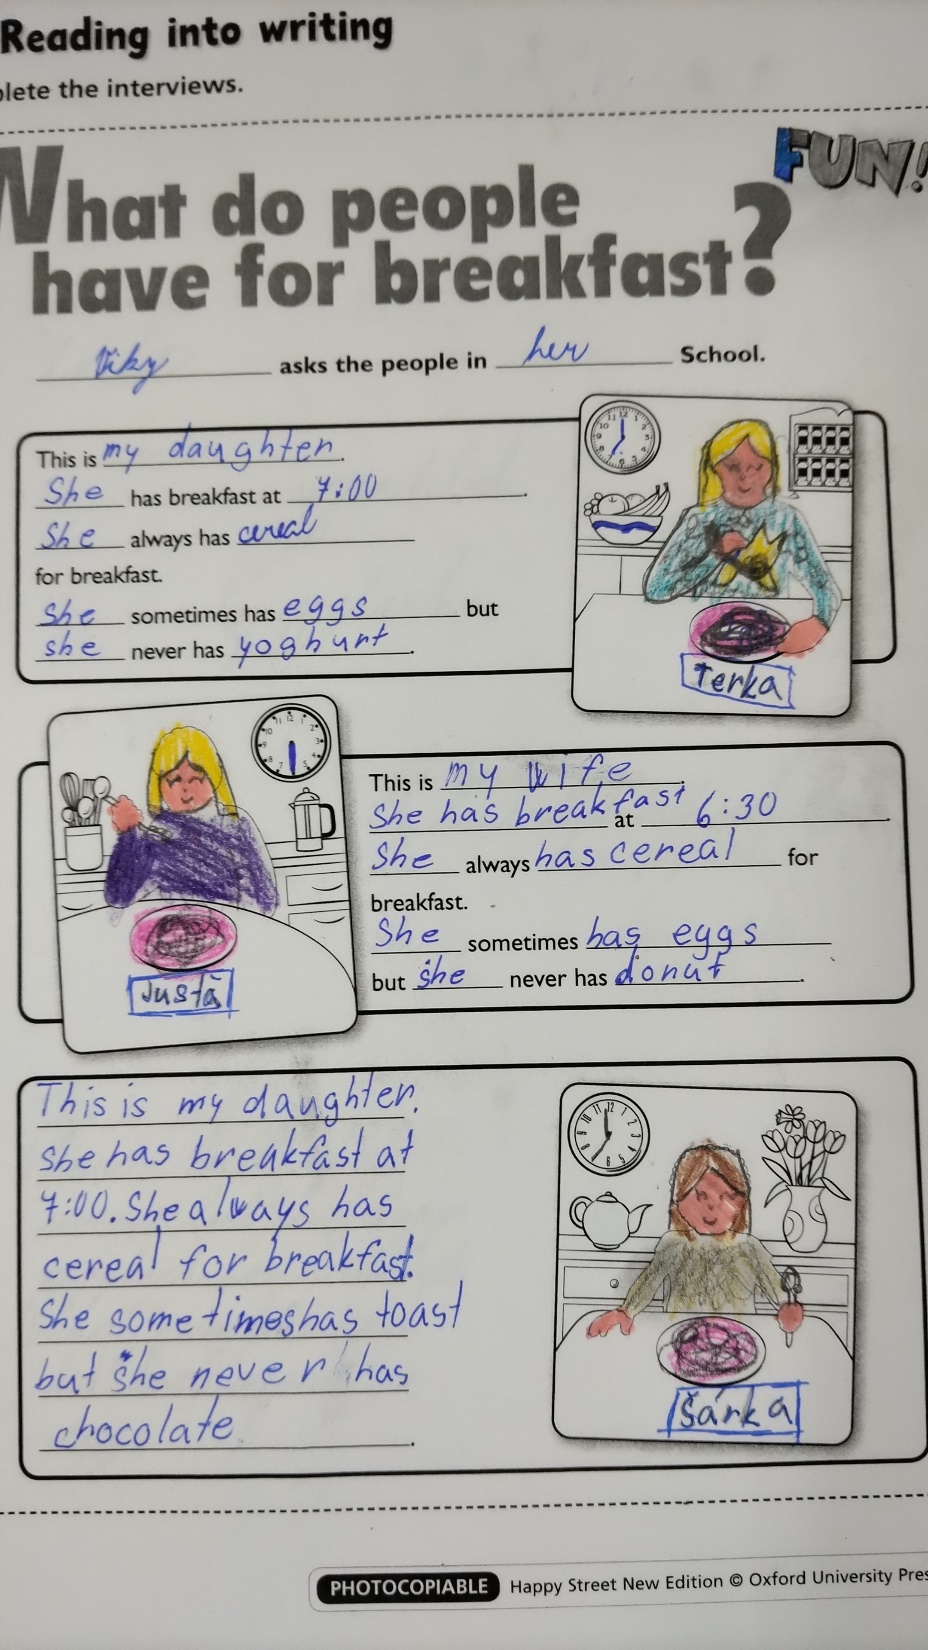 Reading into writing
plete the interviews.
FUN!
What do people
have for breakfast?
Viky asks the people in her School.
This is my daughter.
She has breakfast at 7:00.
She always has cereal
for breakfast.
She sometimes has eggs but
she never has yoghurt.
Terka
This is my wife.
She has breakfast at 6:30.
She always has cereal for
breakfast.
She sometimes has eggs
but she never has donut.
Justa
This is my daughter.
she has breakfast at
7:00. She always has
cereal for breakfast.
She sometimes has toast
but she never has
chocolate.
Šárka
PHOTOCOPIABLE Happy Street New Edition © Oxford University Pres